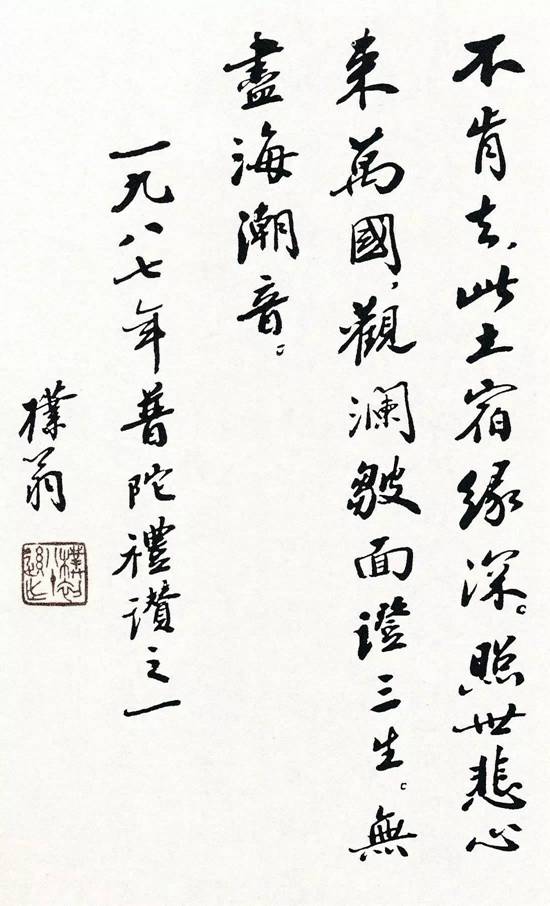 不肯去，此土宿緣深。照世悲心
来萬國，觀澜皺面證三生。無
盡海潮音。
一九八七年普陀禮讚之一
樸翁